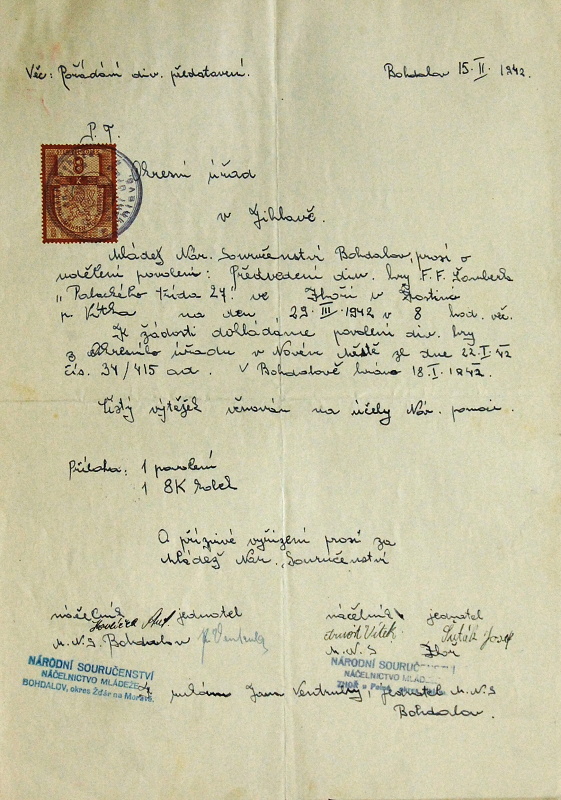 Věc: Pořádání div. představení.
Bohdalov 15. II. 1942.
P. T.
Okresní úřad
v Jihlavě.
Mládež Nár. Souručenství Bohdalov, prosí o
udělení povolení: Předvedení div. hry F. F. Šamberka
"Palackého třída 27." ve Zhoři v hostinci
p. Vítka na den 29. III. 1942 v 8 hod. več.
K žádosti dokládáme povolení div. hry
z Okresního úřadu v Novém Městě ze dne 22. I. 42
čís. 34/415 ad. V Bohdalově hráno 18. I. 1942.
Čistý výtěžek věnován na účely Nár. pomoci.
Příloha: 1 povolení
1 8K kolek
O příznivé vyřízení prosí za
Mládež Nár. Souručenství
náčelník jednatel
M. N. S. Bohdalov
náčelník jednatel
Vítek Josef
M. N. S Zhoř
NÁRODNÍ SOURUČENSTVÍ
NÁČELNICTVO MLÁDEŽE
BOHDALOV, okres Žďár na Moravě.
NÁRODNÍ SOURUČENSTVÍ
NÁČELNICTVO MLÁDEŽE
Jan jednatel M. N. S
Bohdalov.